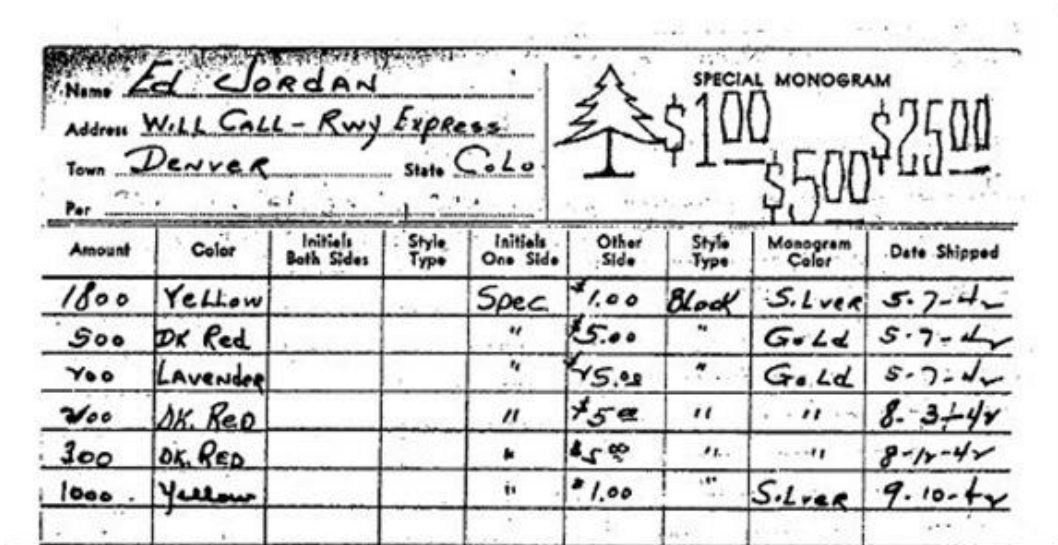 Name Ed Jordan
Address Will Call - Rwy Express
Town Denver State Colo
Per
SPECIAL MONOGRAM
$1.00
$5.00
$25.00
Amount Color Initials Both Sides Style Type Initials One Side Other Side Style Type Monogram Color Date Shipped
1800 Yellow Spec $1.00 Block Silver 5-7-42
500 Dk Red " $5.00 " Gold 5-7-42
Lavender " " Gold 5-7-42
200 Dk. Red " $5.00 " " 8-31-42
300 Dk. Red " $5.00 " " 8-12-42
1000 Yellow " $1.00 " Silver 9-10-42